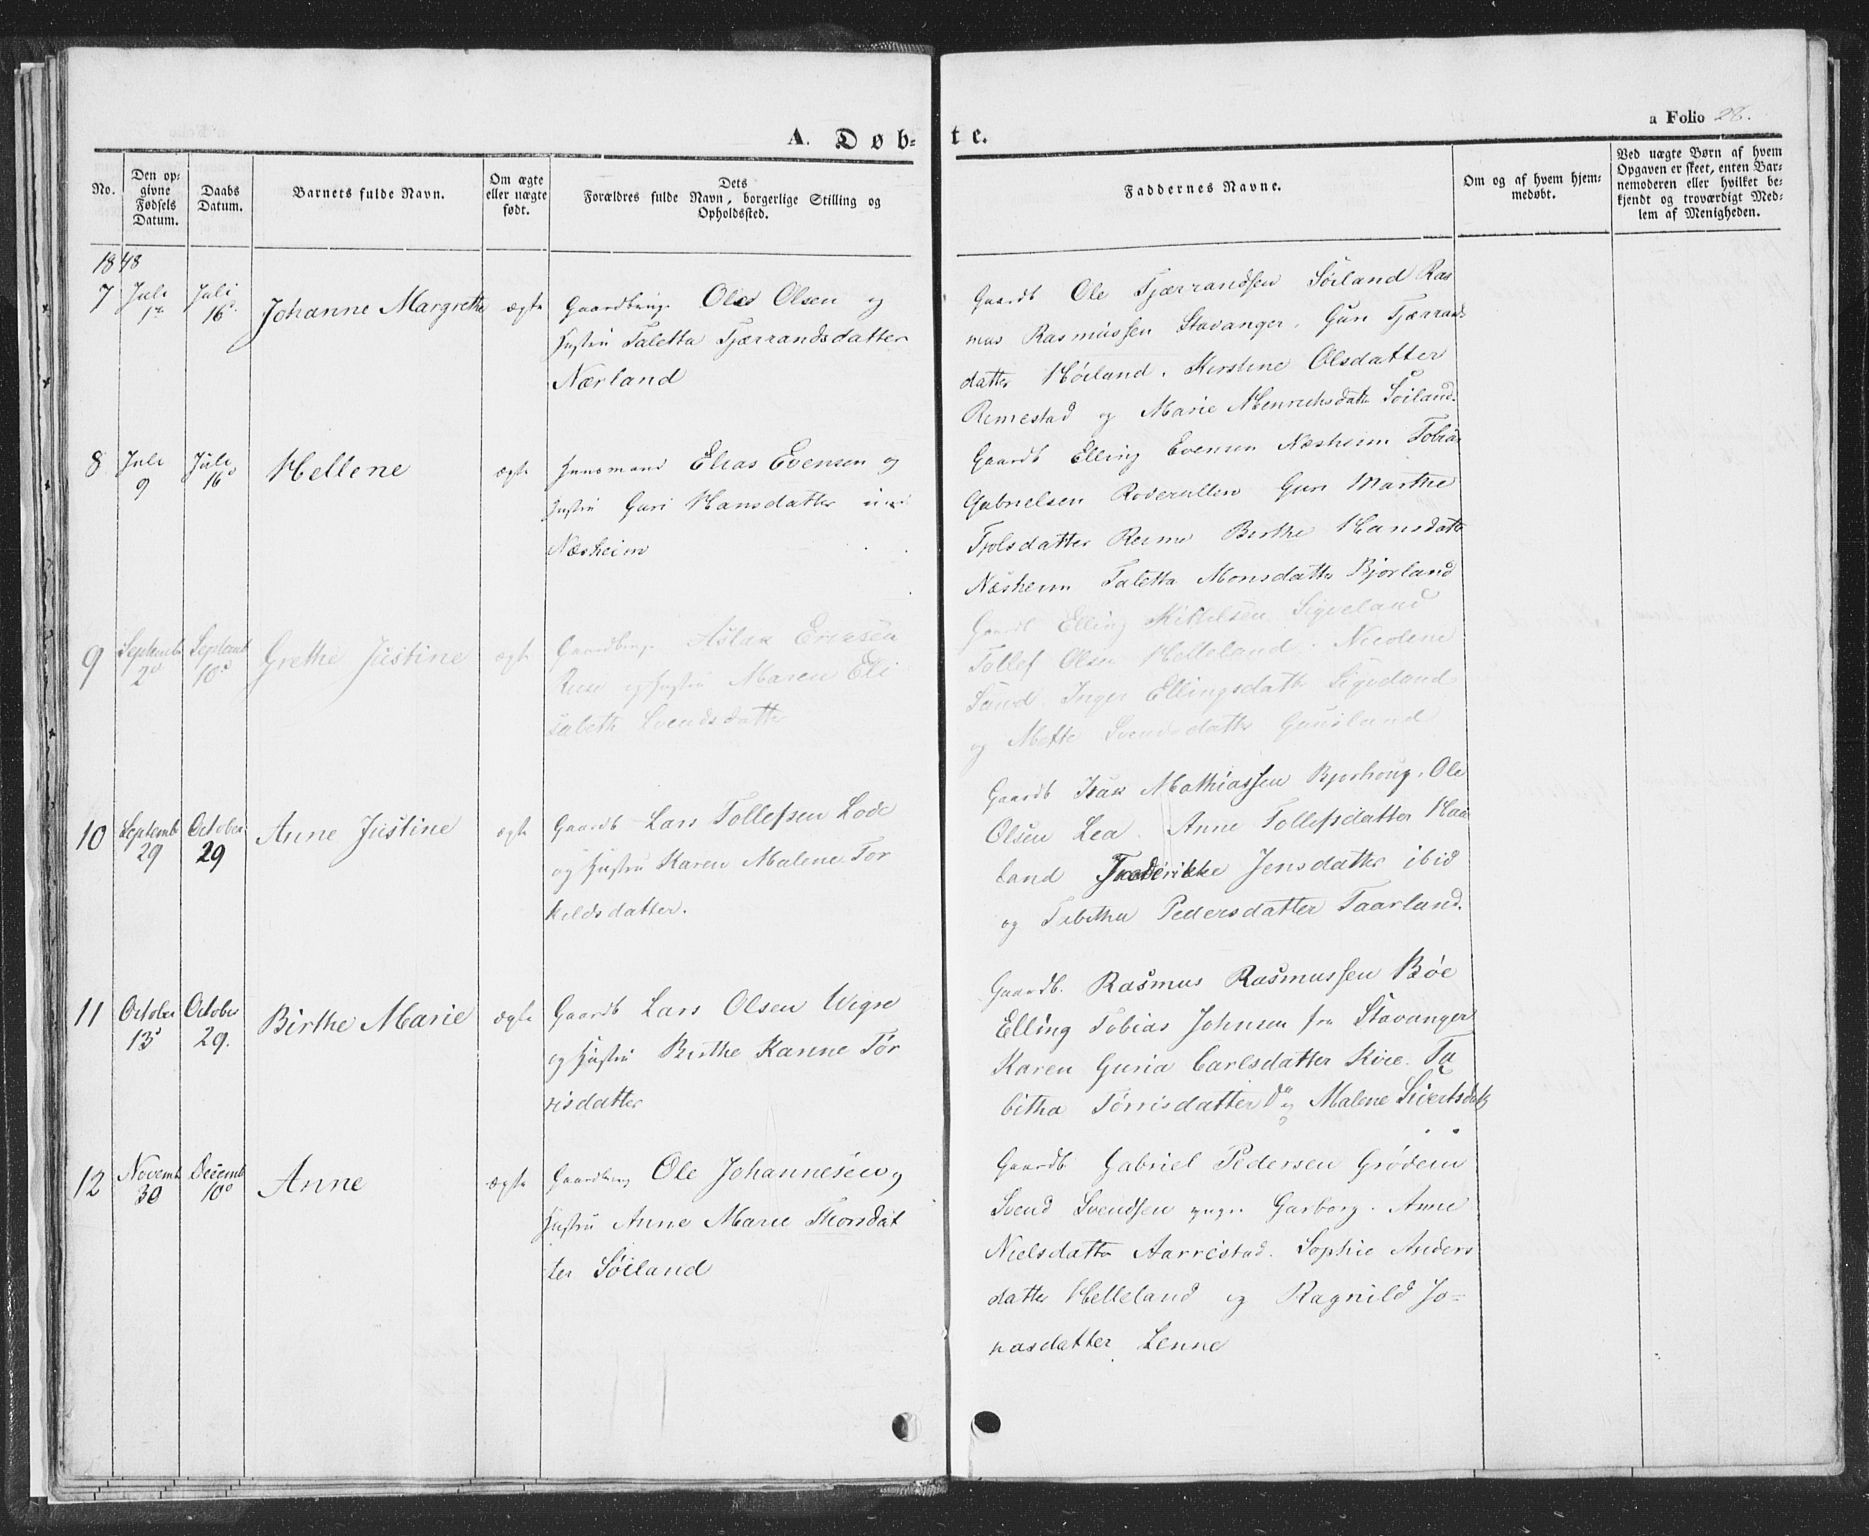 a Folio 28.
A. Døb-
te.
No.
Den op-
givne
Fødsels
Datum.
Daabs
Datum.
Barnets fulde Navn.
Om ægte
eller uægte
født.
Dets
Forældres fulde Navn, borgerlige Stilling og
Opholdssted.
Faddernes Navne.
Om og af hvem hjem-
medøbt.
Ved uægte Børn af hvem
Opgaven er skeet, enten Bar-
nemoderen eller hvilket be-
kjendt og troværdigt Med-
lem af Menigheden.
1848
7 Juli 1 Juli 16 Johanne Margrethe ægte
Gaardbrug. Ole Olsen og
Hustru Taletta Tjærrandsdatter
Nærland
Gaardb Ole Tjærrandsen Søiland Ras
mus Rasmussen Stavanger. Guri Tjærrands
datter Høiland. Kirstine Olsdatter
Rimestad og Marie Henrichsdatt Søiland.
8 Juli 9 Juli 16 Hellene ægte
Huusmand Elias Evensen og
Hustru Guri Hansdatter
Næsheim
Gaardb Elling Evensen Næsheim Tobias
Gabrielsen Guri Marthe
datter Reime Birthe Hansdatte
Næsheim Taletta Monsdatte Bjorland
9 Septemb 2 Septemb 10 Grethe Justine ægte
Gaardbrug. Aslak Ericsen
og Hustru Maren Eli
sabeth Svendsdatter
Gaardb Elling Mikkelsen Sigveland
Tollef Olsen Helleland. Nicoline
Sand. Inger Ellingsdatter Sigveland
og Mette Svendsdatter Gausland
10 Septemb 29 October 29 Anne Justine ægte
Gaardb Lars Tollefsen Lode
og Hustru Karen Malene Tor
kildsdatter.
Gaardb Isak Mathiassen Bjorhoug. Ole
Olsen Lea. Anne Tollefsdatter Haa
land Frederikke Jensdatter ibid
og Tabitha Pedersdatter Taarland.
11 October 13 October 29. Birthe Marie ægte
Gaardb Lars Olsen Wigre
og Hustru Birthe Karine Tør
risdatter
Gaardb. Rasmus Rasmussen Bøe
Elling Tobias Johnsen fra Stavanger
Karen Guria Carlsdatter Kvie. Ta
bitha Tørrisdatter Do og Malene Sivertsdatt
12 Novemb 30 Decemb 10 Anne ægte
Gaardbrug Ole Johannesen og
Hustru Anne Marie Thorsdat
ter Søiland
Gaardb Gabriel Pedersen Grødem
Svend Svendsen yngr. Garborg. Anne
Nielsdatter Aarrestad. Sophie Anders
datter Helleland og Ragnild Jo=
nasdatter Lenne